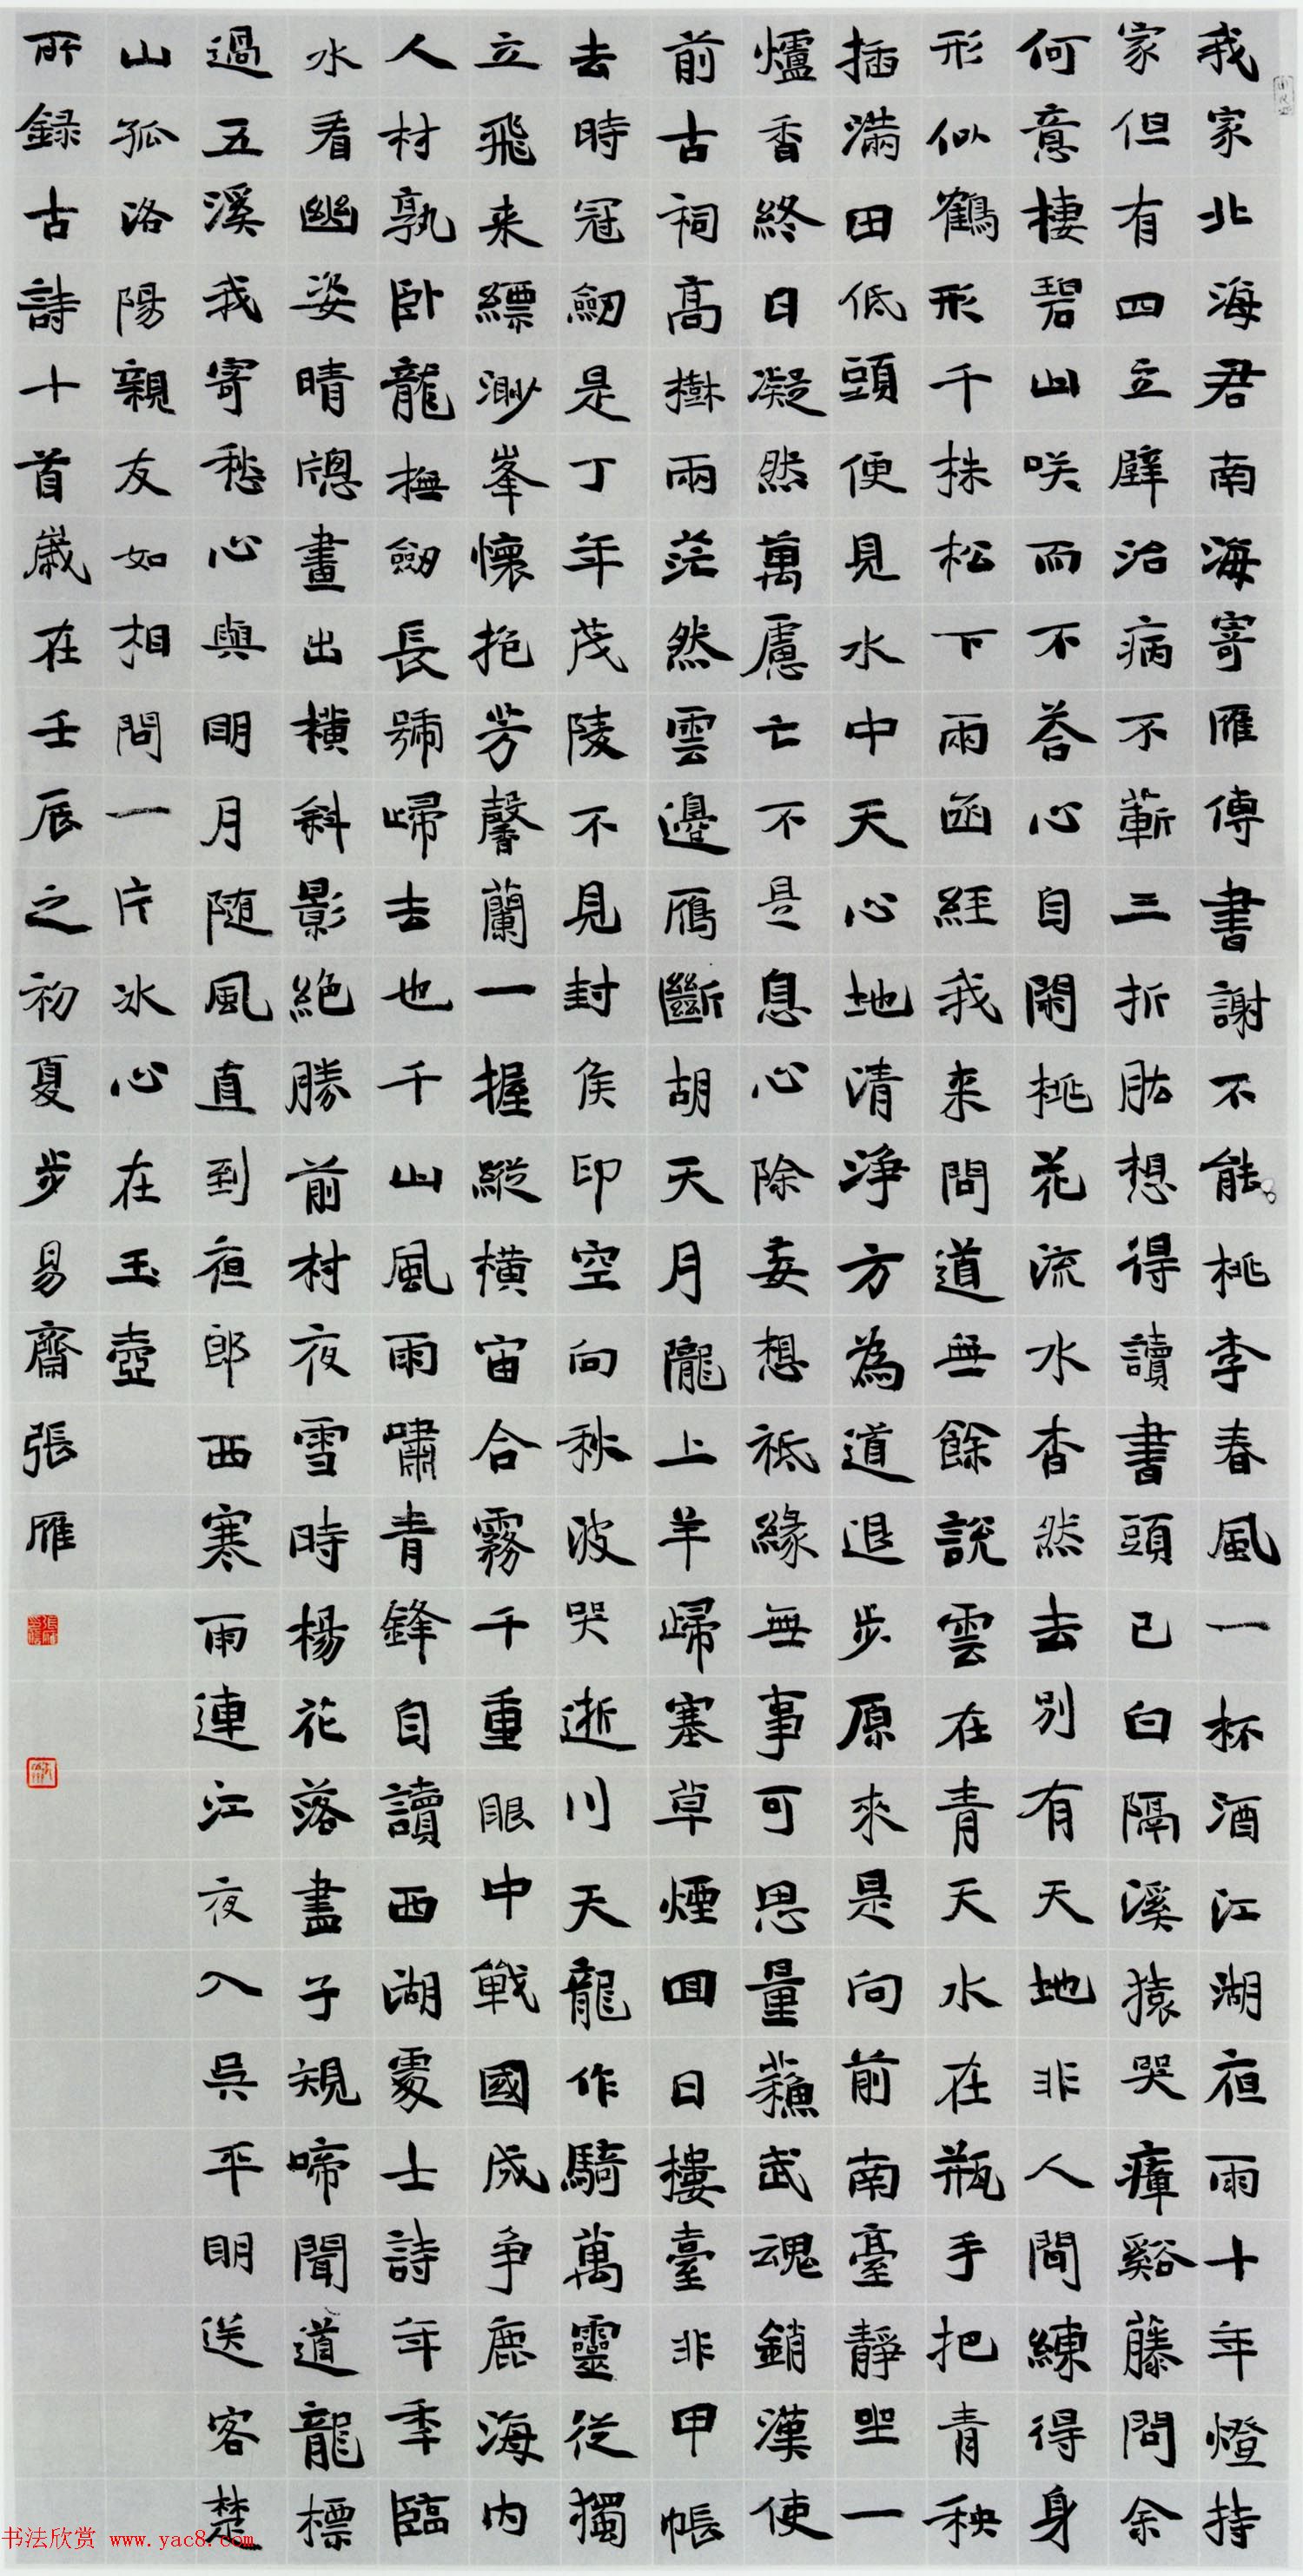 我家北海君南海寄雁傳書謝不能桃李春風一杯酒江湖夜雨十年燈持
家但有四立壁治病不蘄三折肱想得讀書頭已白隔溪猿哭瘴谿藤問余
何意棲碧山咲而不荅心自閑桃花流水杳然去別有天地非人間練得身
形似鶴形千株松下兩函經我来問道無餘說雲在青天水在瓶手把青秧
插滿田低頭便見水中天心地清淨方為道退步原來是向前南臺靜坐一
爐香終日凝然萬慮亡不是息心除妄想祗緣無事可思量蘇武魂銷漢使
前古祠高樹兩茫然雲邊鴈斷胡天月隴上羊歸塞草煙回日樓臺非甲帳
去時冠劍是丁年茂陵不見封侯印空向秋波哭逝川天龍作騎萬靈從獨
立飛来縹渺峯懷抱芳馨蘭一握縱橫宙合霧千重眼中戰國成爭鹿海内
人材孰臥龍撫劍長號歸去也千山風雨嘯青鋒自讀西湖處士詩年年臨
水看幽姿晴窗畫出橫斜影絕勝前村夜雪時楊花落盡子規啼聞道龍標
過五溪我寄愁心與明月随風直到夜郎西寒雨連江夜入吳平明送客楚
山孤洛陽親友如相問一片冰心在玉壺
所録古詩十首歲在壬辰之初夏步易齋張雁
书法欣赏 www.yac8.com